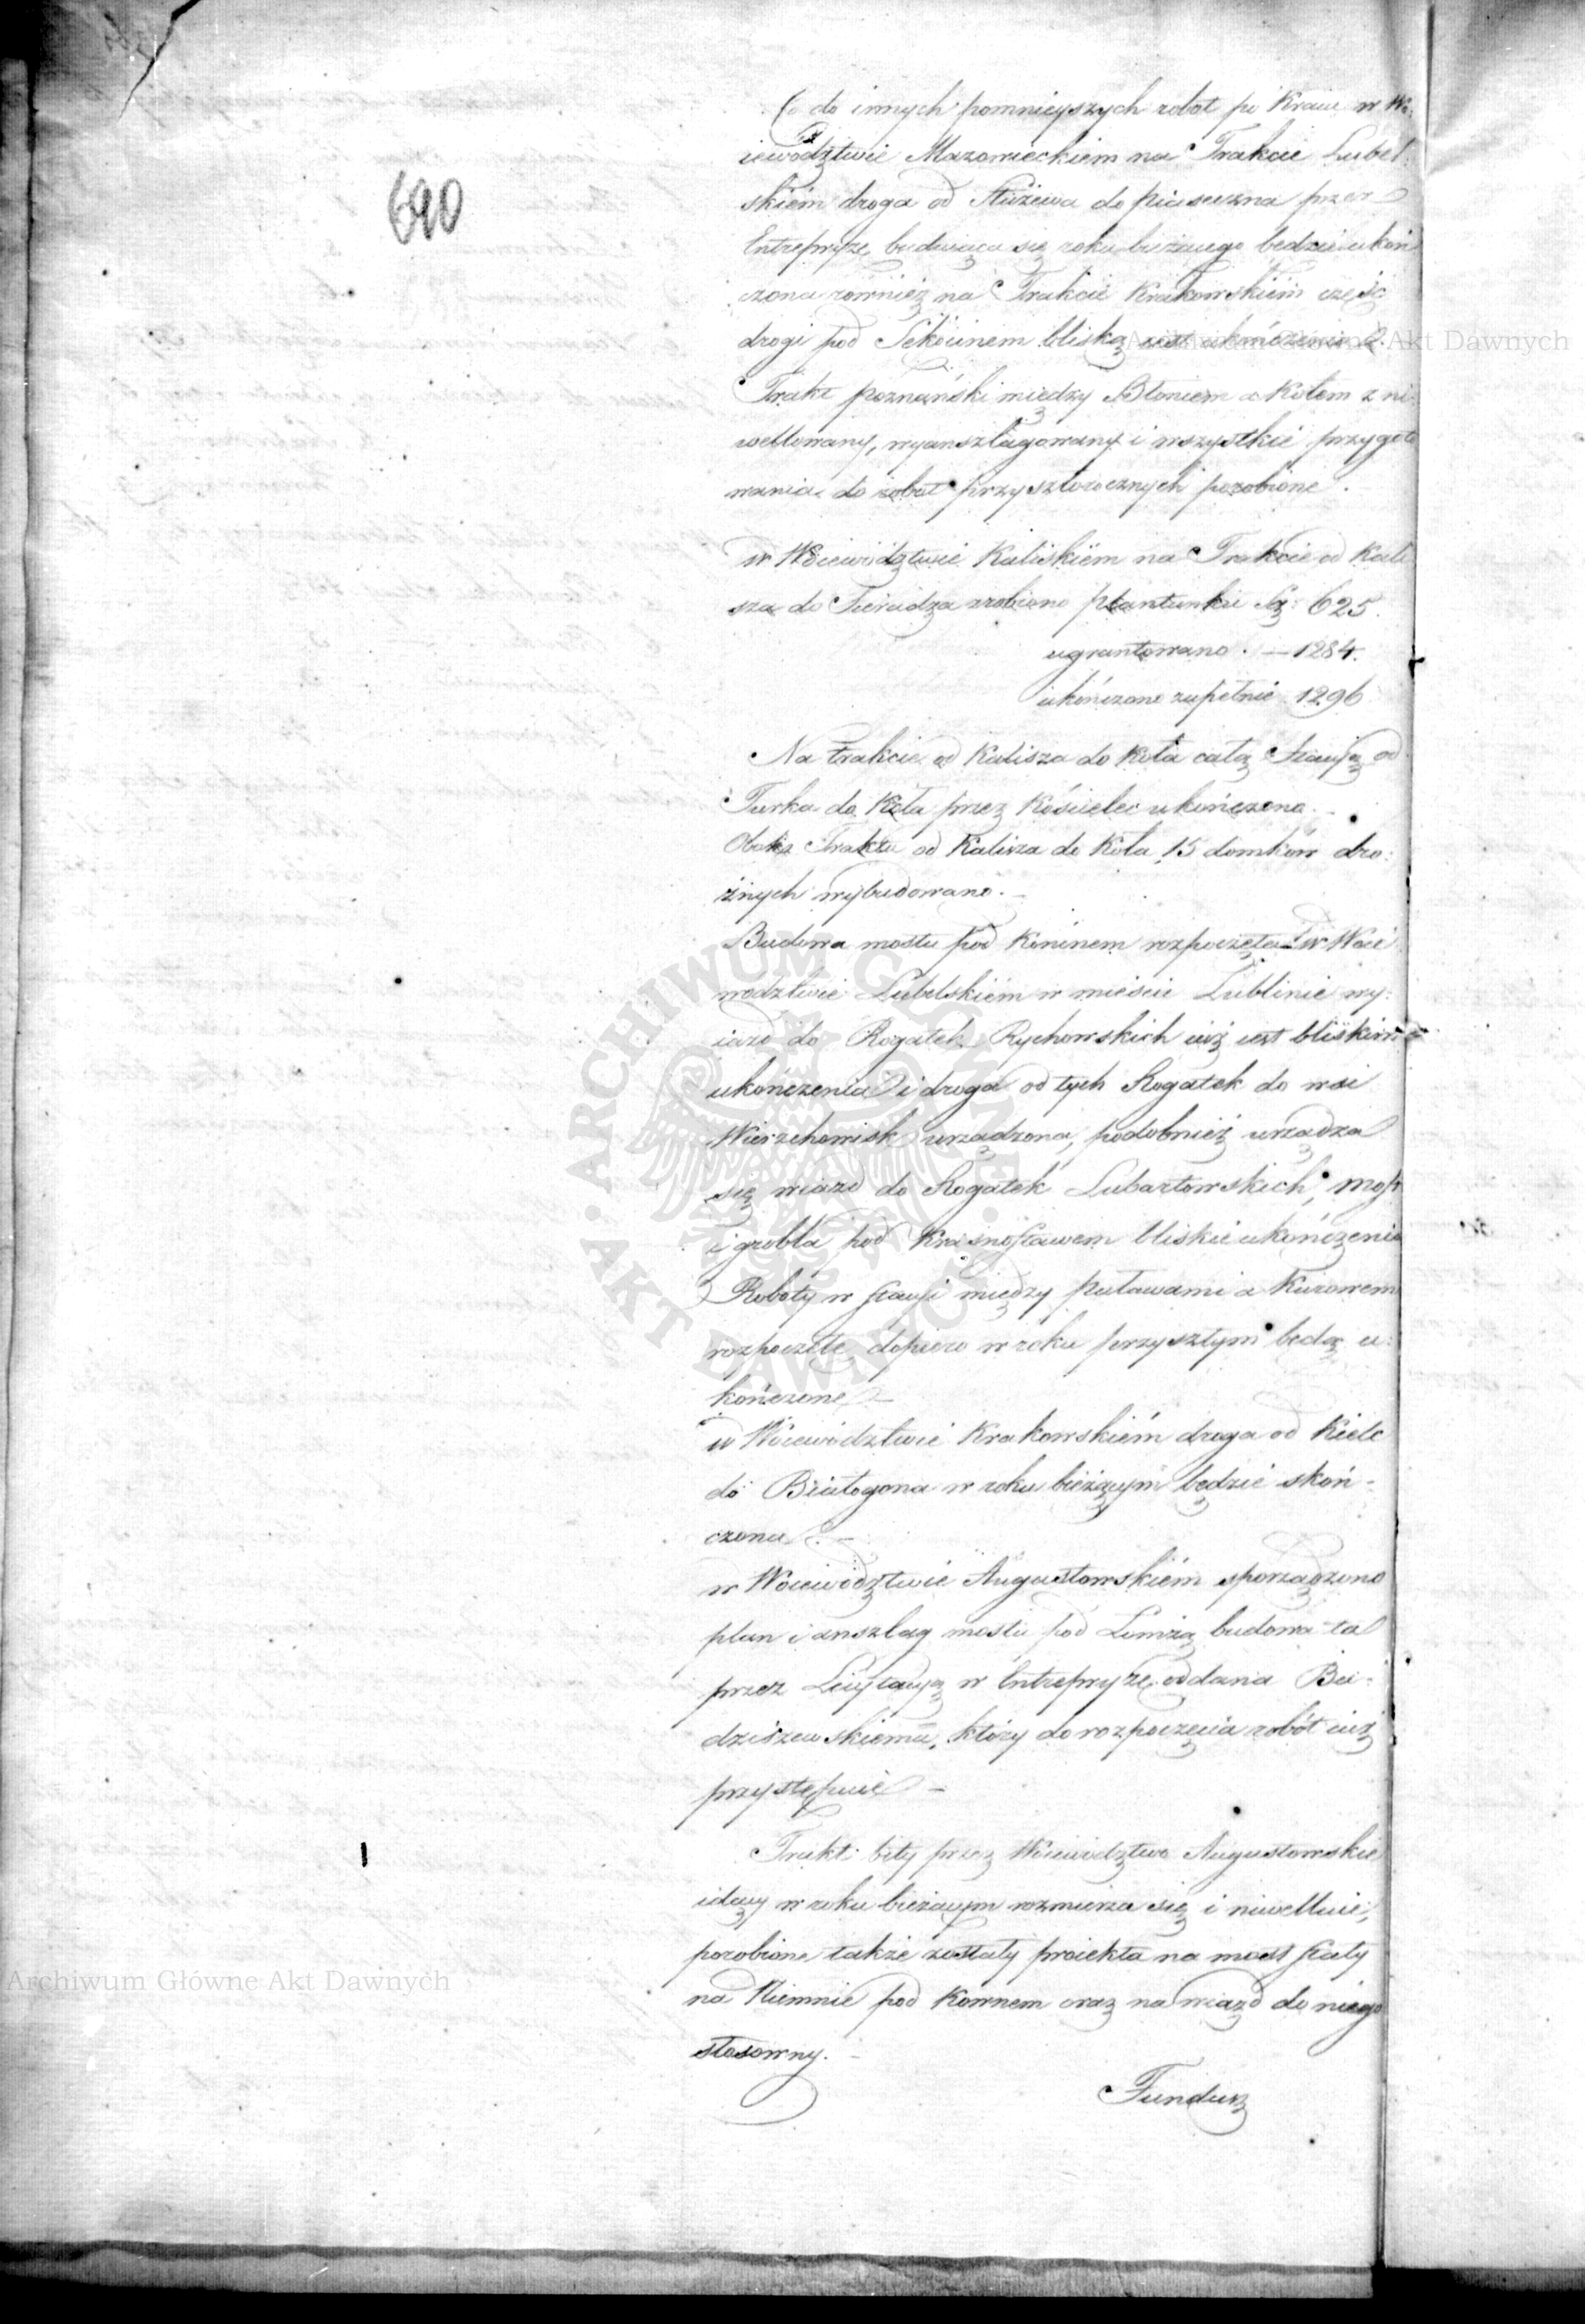 690
Co do innych pomnieyszych robot po Kraiu w Wo:
iewodztwie Mazowieckiem na Trakcie Lubel:
skiém droga od Służewa do Piaseczna przez
Entrepryzę buduiąca się roku bieżącego będzie ukoń
czona również na Trakcie Krakowskiém część
drogi pod Sękocinem bliską iest ukończenia.
Trakt poznański między Błoniem a Kołem zni:
wellowany, wyanszlagowany i wszystkie przygoto
wania do robot przyszłorocznych porobione.
w Woiewództwie Kaliskiém na Trakcie od Kali
sza do Sieradza zrobiono plantunku Są: 625.
ugrantowano. — 1284.
ukończono zupełnie 1296
Na trakcie od Kalisza do Koła całą Szausę od
Turka do Koła przez Kościelec ukończono. —
Obok Traktu od Kalisza do Koła 15 domków dro:
żnych wybudowano. —
Budowa mostu pod Koninem rozpoczęta w Woie
wodztwie Lubelskiém w mieście Lublinie wy:
iazd do Rogatek Rychowskich iuż iest bliskim
ukończenia i droga od tych Rogatek do wsi
Wierzchowisk urządzona, podobnież urządza
się wiazd do Rogatek Lubartowskich, most
i grobla pod Krasnostawem bliskie ukończenia
Roboty w szausi między Puławami a Kurowem
rozpoczęte dopiero w roku przyszłym będą u:
kończone —
w Woiewództwie Krakowskiém droga od Kielc
do Białogona w roku bieżącym będzie skoń-
czona. —
w Woiewództwie Augustowskiém sporządzono
plan i anszlag mostu pod Łomżą budowa ta
przez Licytacyą w Entrepryzę oddana Bu:
dziszewskiemu, który do rozpoczęcia robót iuż
przystępuie —
Trakt bity przez Woiewództwo Augustowskie
idący w roku bieżącym rozmierza się i niwelluie,
porobione także zostały proiekta na most stały
na Niemnie pod Kownem oraz na wiazd do niego
stosowny. —
Fundusz
Archiwum Główne Akt Dawnych
Archiwum Główne Akt Dawnych
ARCHIWUM GŁÓWNE · AKT DAWNYCH ·